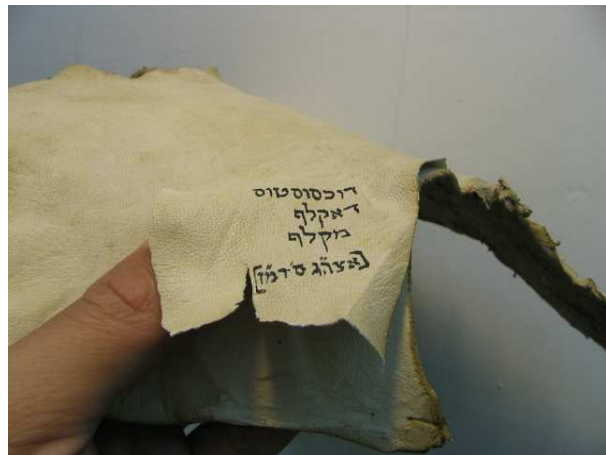 דוכסוסטוס
דאקלף
מקלף
[אצה״ג ס׳ דמ״ז]